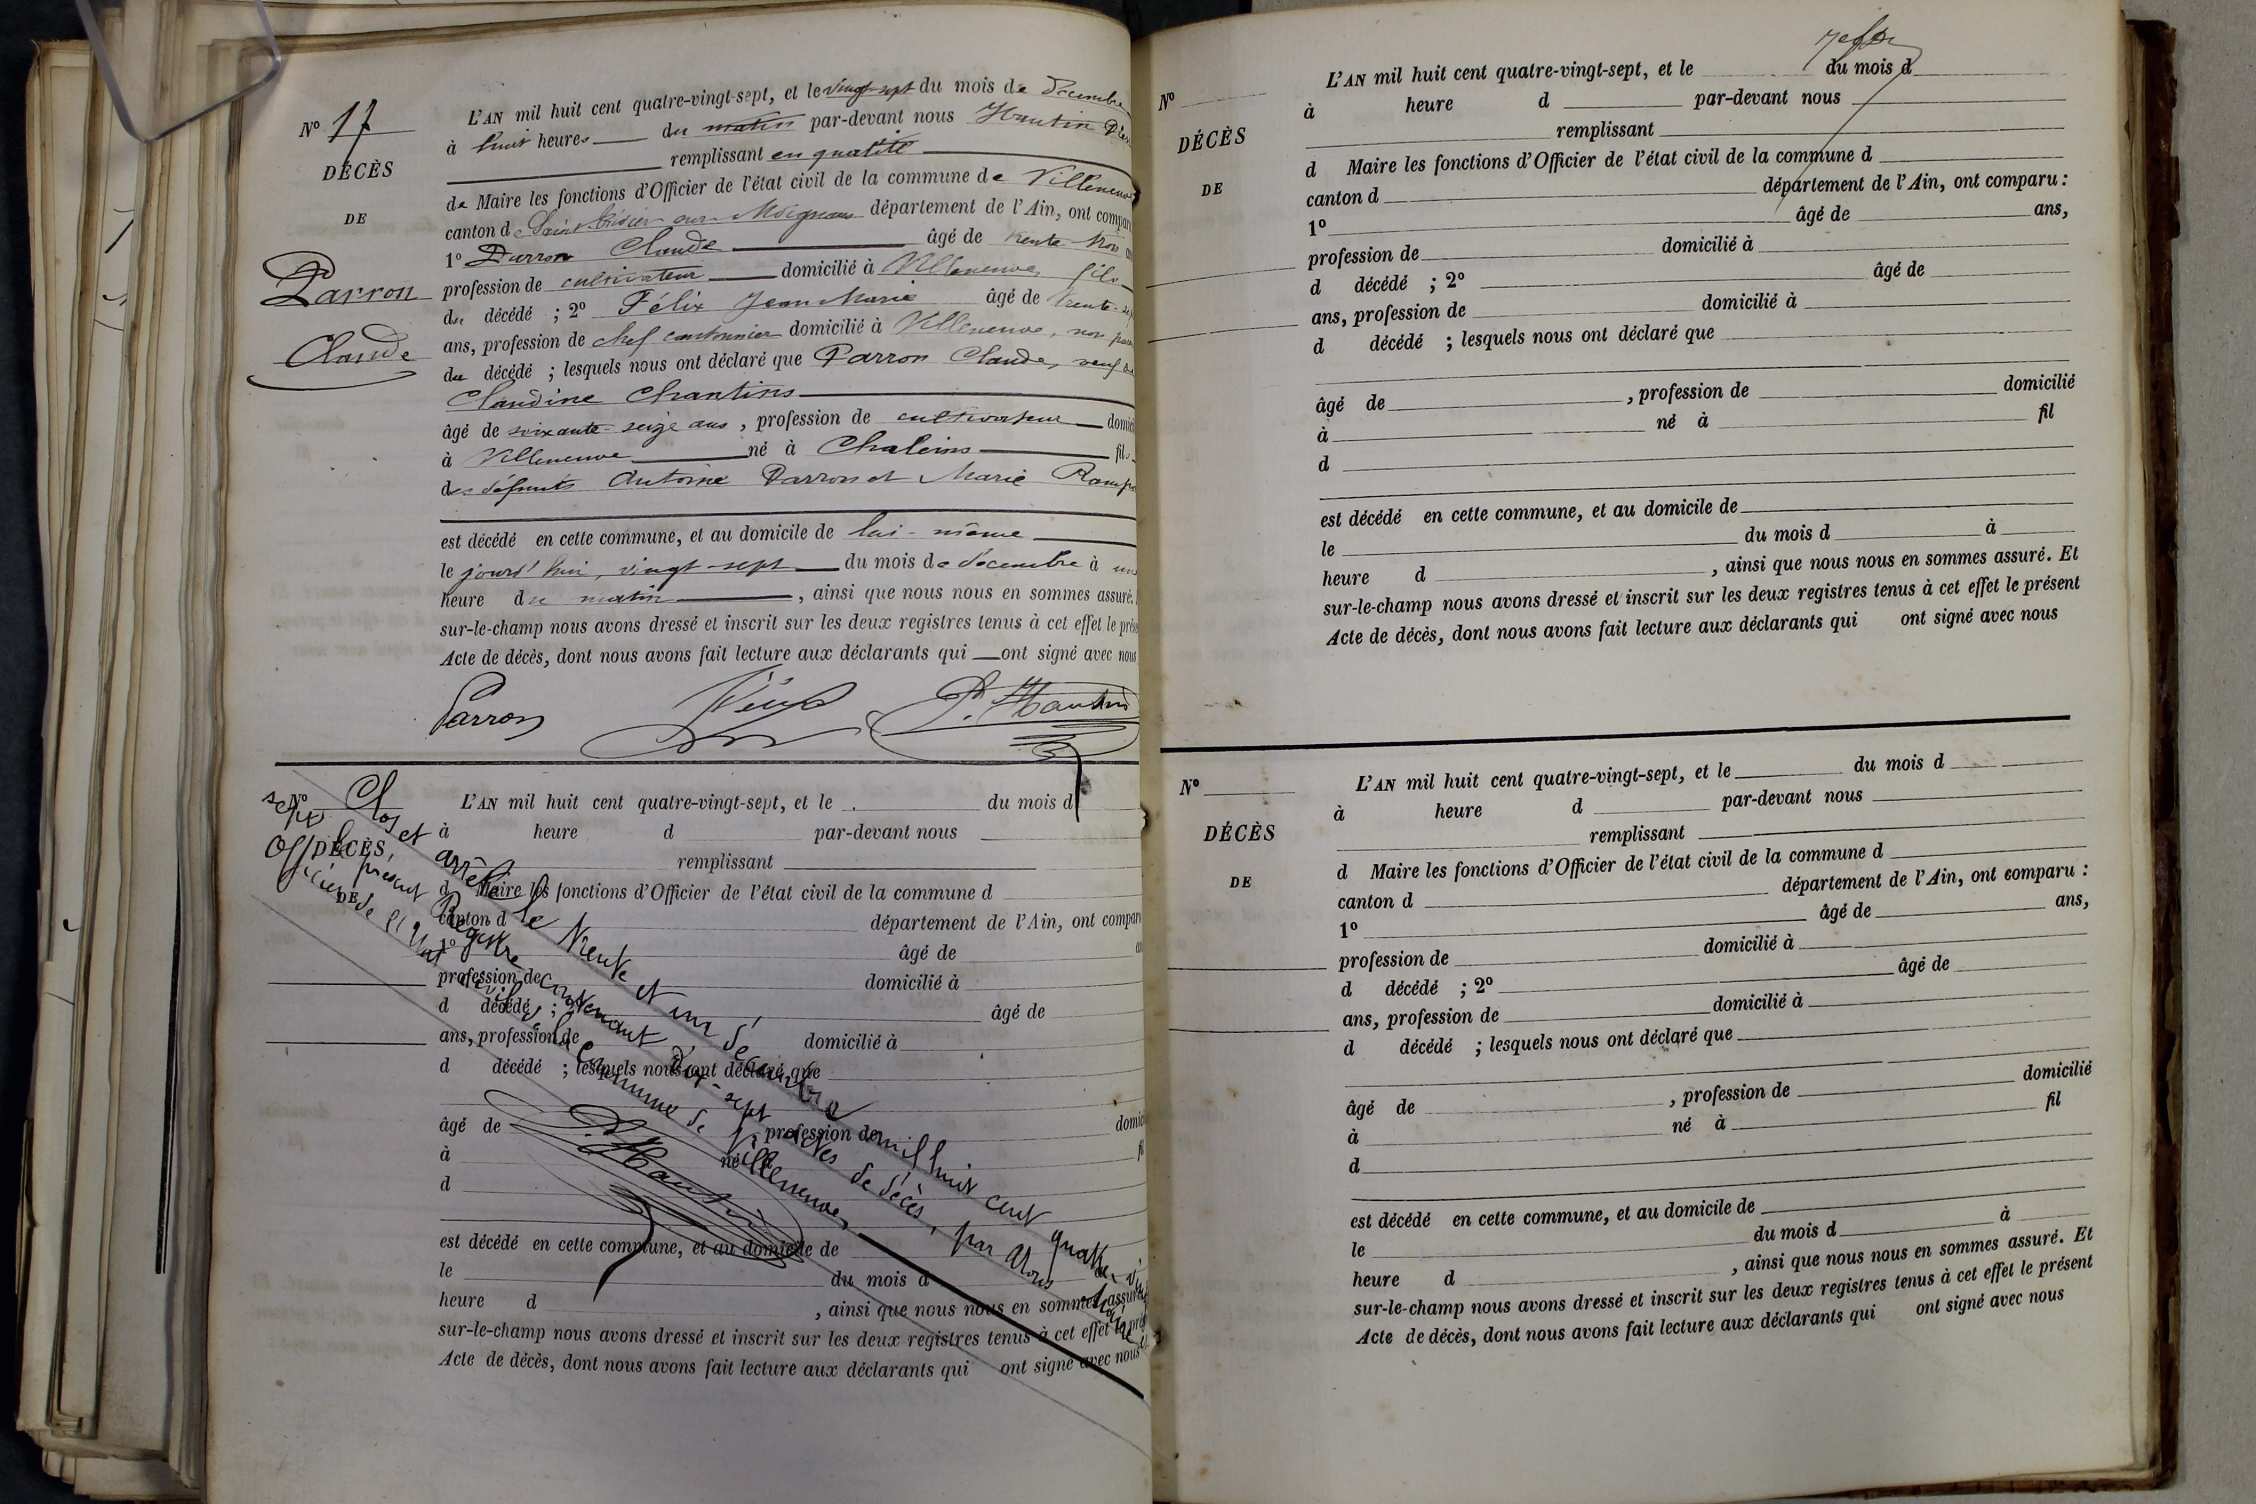 N° 17
DÉCÈS
DE
Parron
Claude
L'AN mil huit cent quatre-vingt-sept, et le vingt-sept du mois de Décembre
à huit heures du matin par-devant nous Hautin
remplissant en qualité
de Maire les fonctions d'Officier de l'état civil de la commune de Villeneuve
canton de Saint Trivier sur Moignans département de l'Ain, ont comparu
1° Parron Claude âgé de trente-trois
profession de cultivateur domicilié à Villeneuve, fils
du décédé ; 2° Félix Jean Marie âgé de trente-
ans, profession de chef cantonnier domicilié à Villeneuve, non
du décédé ; lesquels nous ont déclaré que Parron Claude, veuf de
Claudine Chantins
âgé de soixante-seize ans, profession de cultivateur
à Villeneuve né à Chaleins fils
des défunts Antoine Parron et Marie
est décédé en cette commune, et au domicile de lui-même
le jourd'hui, vingt-sept du mois de décembre à une
heure du matin, ainsi que nous nous en sommes assuré.
sur-le-champ nous avons dressé et inscrit sur les deux registres tenus à cet effet le
Acte de décès, dont nous avons fait lecture aux déclarants qui ont signé avec nous
Parron Félix P. Hautin
N°
DÉCÈS
DE
L'AN mil huit cent quatre-vingt-sept, et le du mois d
à heure d par-devant nous
remplissant
d Maire les fonctions d'Officier de l'état civil de la commune d
canton d département de l'Ain, ont
1° âgé de
profession de domicilié à
d décédé ; 2° âgé de
ans, profession de domicilié à
d décédé ; lesquels nous ont déclaré que
âgé de , profession de
à né à
d
est décédé en cette commune, et au domicile de
le du mois d
heure d , ainsi que nous nous en sommes assuré.
sur-le-champ nous avons dressé et inscrit sur les deux registres tenus à cet effet le
Acte de décès, dont nous avons fait lecture aux déclarants qui ont signé avec nous
Clos et arrêté le trente et un décembre mil huit cent quatre-vingt
sept, le présent Registre contenant dix-sept actes de décès, par nous Maire
Officier de l'Etat civil de la Commune de Villeneuve,
P. Hautin
N°
DÉCÈS
DE
L'AN mil huit cent quatre-vingt-sept, et le du mois d
à heure d par-devant nous
remplissant
d Maire les fonctions d'Officier de l'état civil de la commune d
canton d département de l'Ain, ont comparu :
1° âgé de ans,
profession de domicilié à
d décédé ; 2° âgé de
ans, profession de domicilié à
d décédé ; lesquels nous ont déclaré que
âgé de , profession de domicilié
à né à fil
d
est décédé en cette commune, et au domicile de
le du mois d à
heure d , ainsi que nous nous en sommes assuré. Et
sur-le-champ nous avons dressé et inscrit sur les deux registres tenus à cet effet le présent
Acte de décès, dont nous avons fait lecture aux déclarants qui ont signé avec nous
N°
DÉCÈS
DE
L'AN mil huit cent quatre-vingt-sept, et le du mois d
à heure d par-devant nous
remplissant
d Maire les fonctions d'Officier de l'état civil de la commune d
canton d département de l'Ain, ont comparu :
1° âgé de ans,
profession de domicilié à
d décédé ; 2° âgé de
ans, profession de domicilié à
d décédé ; lesquels nous ont déclaré que
âgé de , profession de domicilié
à né à fil
d
est décédé en cette commune, et au domicile de
le du mois d à
heure d , ainsi que nous nous en sommes assuré. Et
sur-le-champ nous avons dressé et inscrit sur les deux registres tenus à cet effet le présent
Acte de décès, dont nous avons fait lecture aux déclarants qui ont signé avec nous